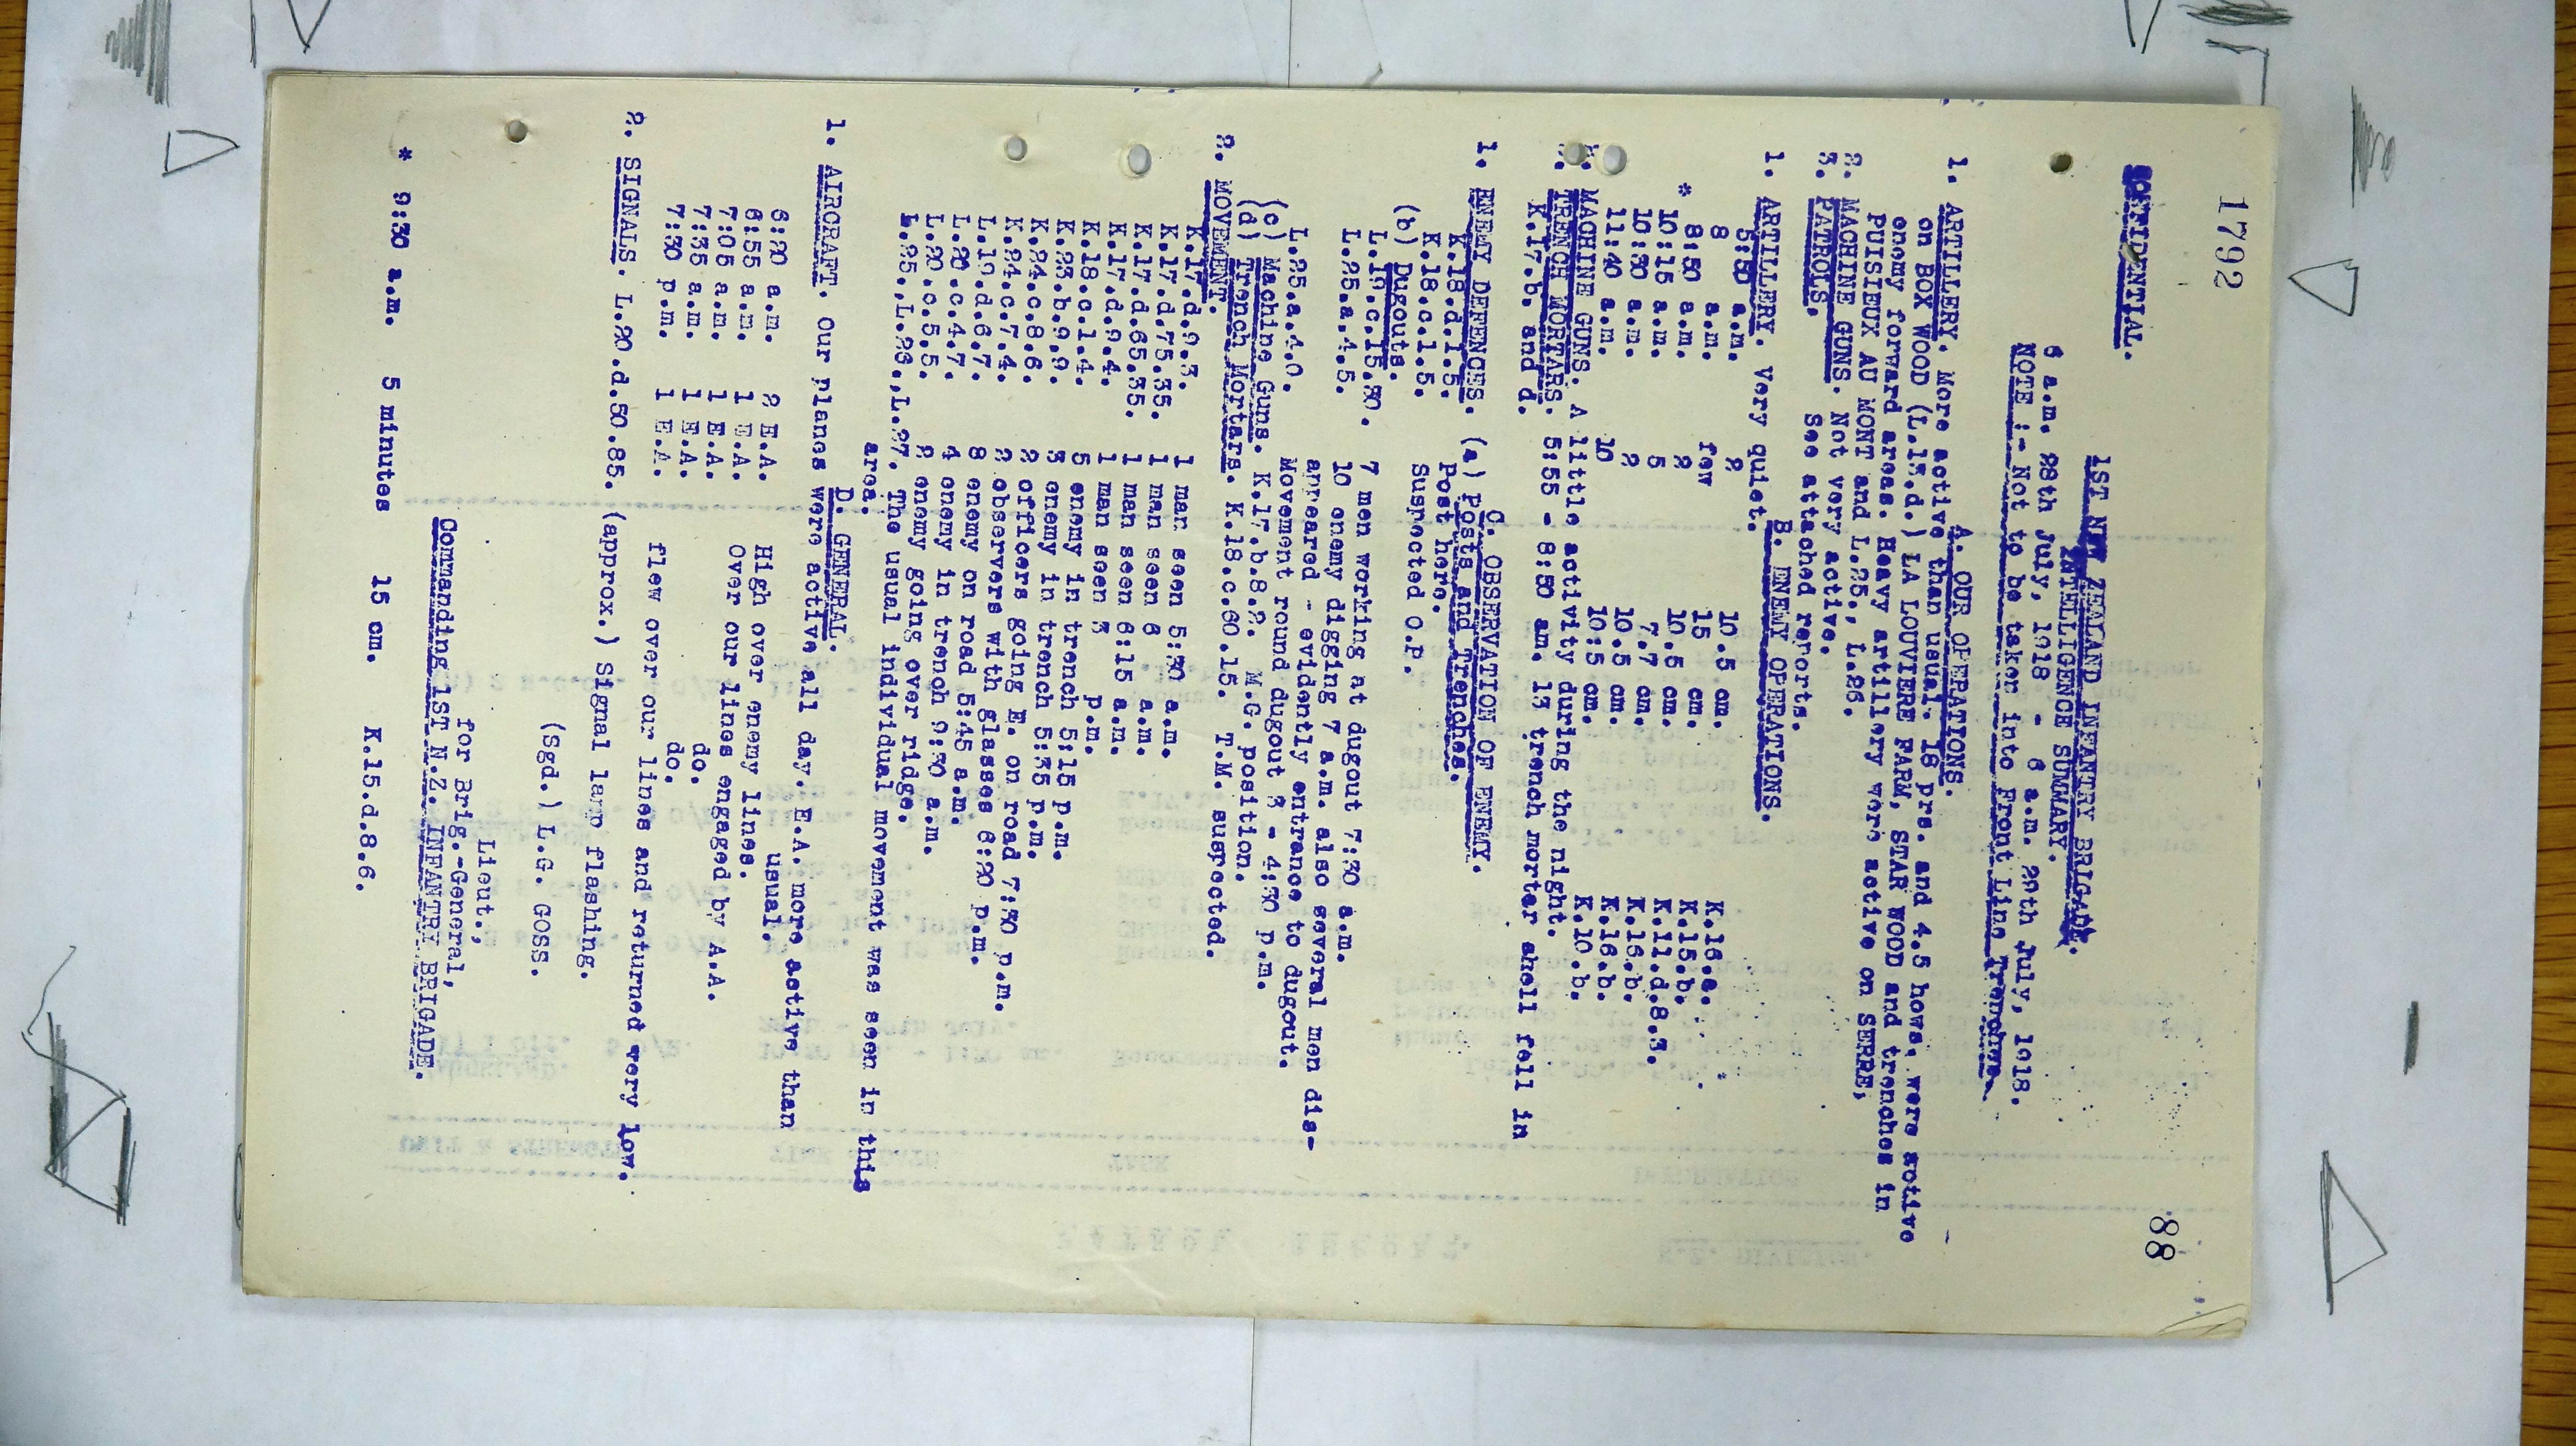 1792
88
CONFIDENTIAL.
1ST NEW ZEALAND INFANTRY BRIGADE.
INTELLIGENCE SUMMARY.
6 a.m. 28th July, 1918 - 6 a.m. 29th July, 1918.
NOTE :- Not to be taken into Front Line Trenches.
A. OUR OPERATIONS.
1. ARTILLERY. More active than usual. 18 prs. and 4.5 hows. were active
on BOX WOOD (L.13.d.) LA LOUVIERE FARM, STAR WOOD and trenches in
enemy forward areas. Heavy artillery were active on SERRE,
PUISIEUX AU MONT and L.25., L.26.
2. MACHINE GUNS. Not very active.
3. PATROLS. See attached reports.
B. ENEMY OPERATIONS.
1. ARTILLERY. Very quiet.
5:50 a.m. 2 10.5 cm. K.16.a.
8 a.m. few 15 cm. K.15.b.
* 8:50 a.m. 2 10.5 cm. K.11.d.8.3.
10:15 a.m. 5 7.7 cm. K.16.b.
10:30 a.m. 2 10.5 cm. K.16.b.
11:40 a.m. 10 10.5 cm. K.10.b.
MACHINE GUNS. A little activity during the night.
TRENCH MORTARS. 5:55 - 8:50 am. 13 trench mortar shell fell in
K.17.b. and d.
C. OBSERVATION OF ENEMY.
1. ENEMY DEFENCES. (a) Posts and Trenches.
K.18.d.1.5. Post here.
K.18.c.1.5. Suspected O.P.
(b) Dugouts.
L.19.c.15.80. 7 men working at dugout 7:30 a.m.
L.25.a.4.5. 10 enemy digging 7 a.m. also several men dis-
appeared - evidently entrance to dugout.
L.25.a.4.0. Movement round dugout 3 - 4:30 p.m.
(c) Machine Guns. K.17.b.8.2. M.G. position.
(d) Trench Mortars. K.18.c.60.15. T.M. suspected.
2. MOVEMENT.
K.17.d.9.3. 1 man seen 5:30 a.m.
K.17.d.75.35. 1 man seen 6 a.m.
K.17.d.65.35. 1 man seen 6:15 a.m.
K.17.d.9.4. 1 man seen 3 p.m.
K.18.c.1.4. 5 enemy in trench 5:15 p.m.
K.23.b.9.9. 3 enemy in trench 5:35 p.m.
K.24.c.8.6. 2 officers going E. on road 7:30 p.m.
K.24.c.7.4. 2 observers with glasses 6:20 p.m.
L.19.d.6.7. 8 enemy on road 5:45 a.m.
L.20.c.4.7. 4 enemy in trench 9:30 a.m.
L.20.c.5.5. 2 enemy going over ridge.
L.25.,L.26.,L.27. The usual individual movement was seen in this
area.
D. GENERAL.
1. AIRCRAFT. Our planes were active all day. E.A. more active than
usual.
6:20 a.m. 2 E.A. High over enemy lines.
6:55 a.m. 1 E.A. Over our lines engaged by A.A.
7:05 a.m. 1 E.A. do.
7:35 a.m. 1 E.A. do.
7:30 p.m. 1 E.A. flew over our lines and returned very low.
2. SIGNALS. L.20.d.50.85. (approx.) Signal lamp flashing.
(Sgd.) L.G. GOSS.
Lieut.,
for Brig.-General,
Commanding 1ST N.Z. INFANTRY BRIGADE.
* 9:30 a.m. 5 minutes 15 cm. K.15.d.8.6.